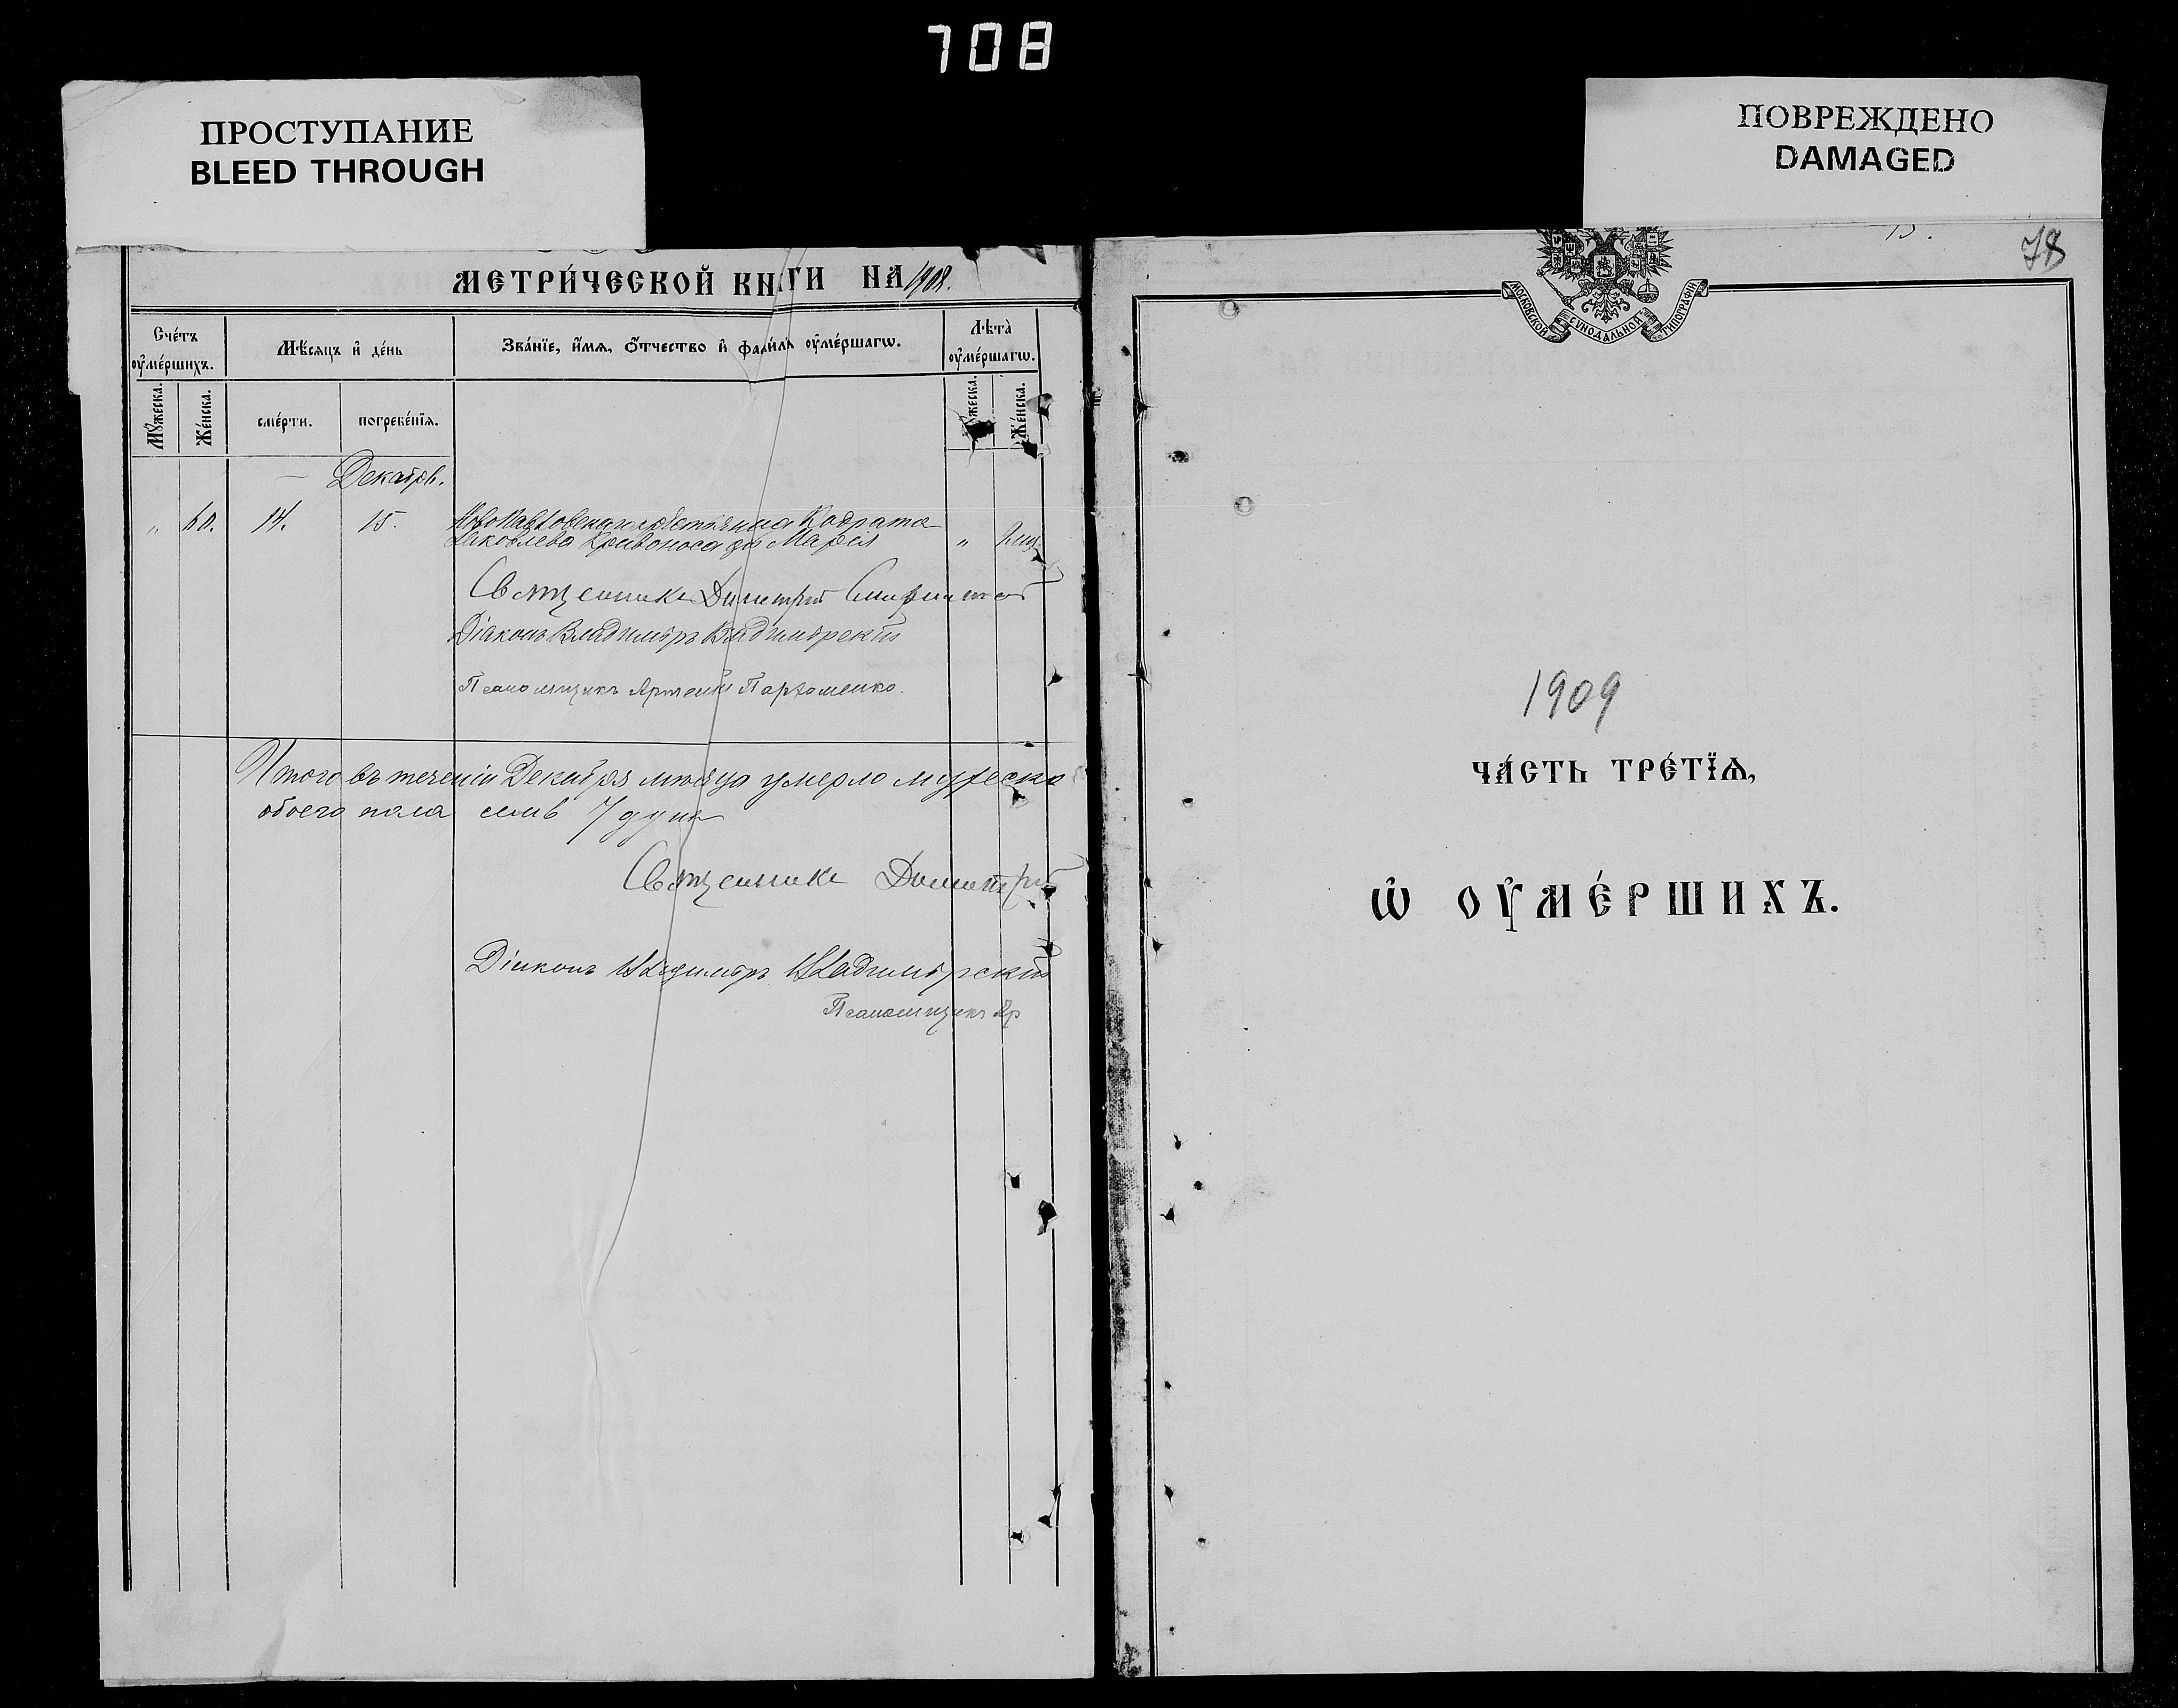 708
ПРОСТУПАНИЕ
BLEED THROUGH
ПОВРЕЖДЕНО
DAMAGED
МЕТРИ́ЧЕСКОЙ КНИГИ НА 1908.
Сче́тъ оу҆ме́ршихъ.
Мѣ́сяцъ и҆ де́нь
Зва́нїе, и҆́мѧ, ѻ҆́тчество и҆ фами́лїѧ оу҆ме́ршагѡ.
Лѣ́та оу҆ме́ршагѡ.
Мꙋ́жеска.
Же́нска.
сме́рти.
погребе́нїѧ.
Мꙋ́жеска.
Же́нска.
Декабрь.
„ 60. 14. 15.
Кодрата
Яковлева Кривоноса Марѳа „
Священникъ Димитрій
Діаконъ Владиміръ Владимірскій
Псаломщикъ Пархоменко.
Итого въ теченіи Декабря мѣсяца умерло мужеска
обоего пола семь 7 душъ
Священникъ Димитрій
Діаконъ Владиміръ Владимірскій
Псаломщикъ Ар
78
МОСКОВСКОЙ СѴНОДАЛЬНОЙ ТИПОГРАФІИ
1909
ЧА́СТЬ ТРЕ́ТЇѦ,
Ѡ҆ ОУ҆МЕ́РШИХЪ.